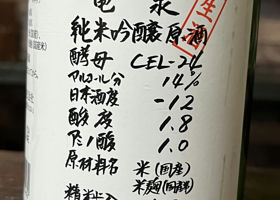 亀泉
純米吟醸原酒
生酒
酵母 CEL-24
アルコール分 14%
日本酒度 -12
酸度 1.8
アミノ酸 1.0
原材料名 米(国産)
米麹(国産米)
精米歩合